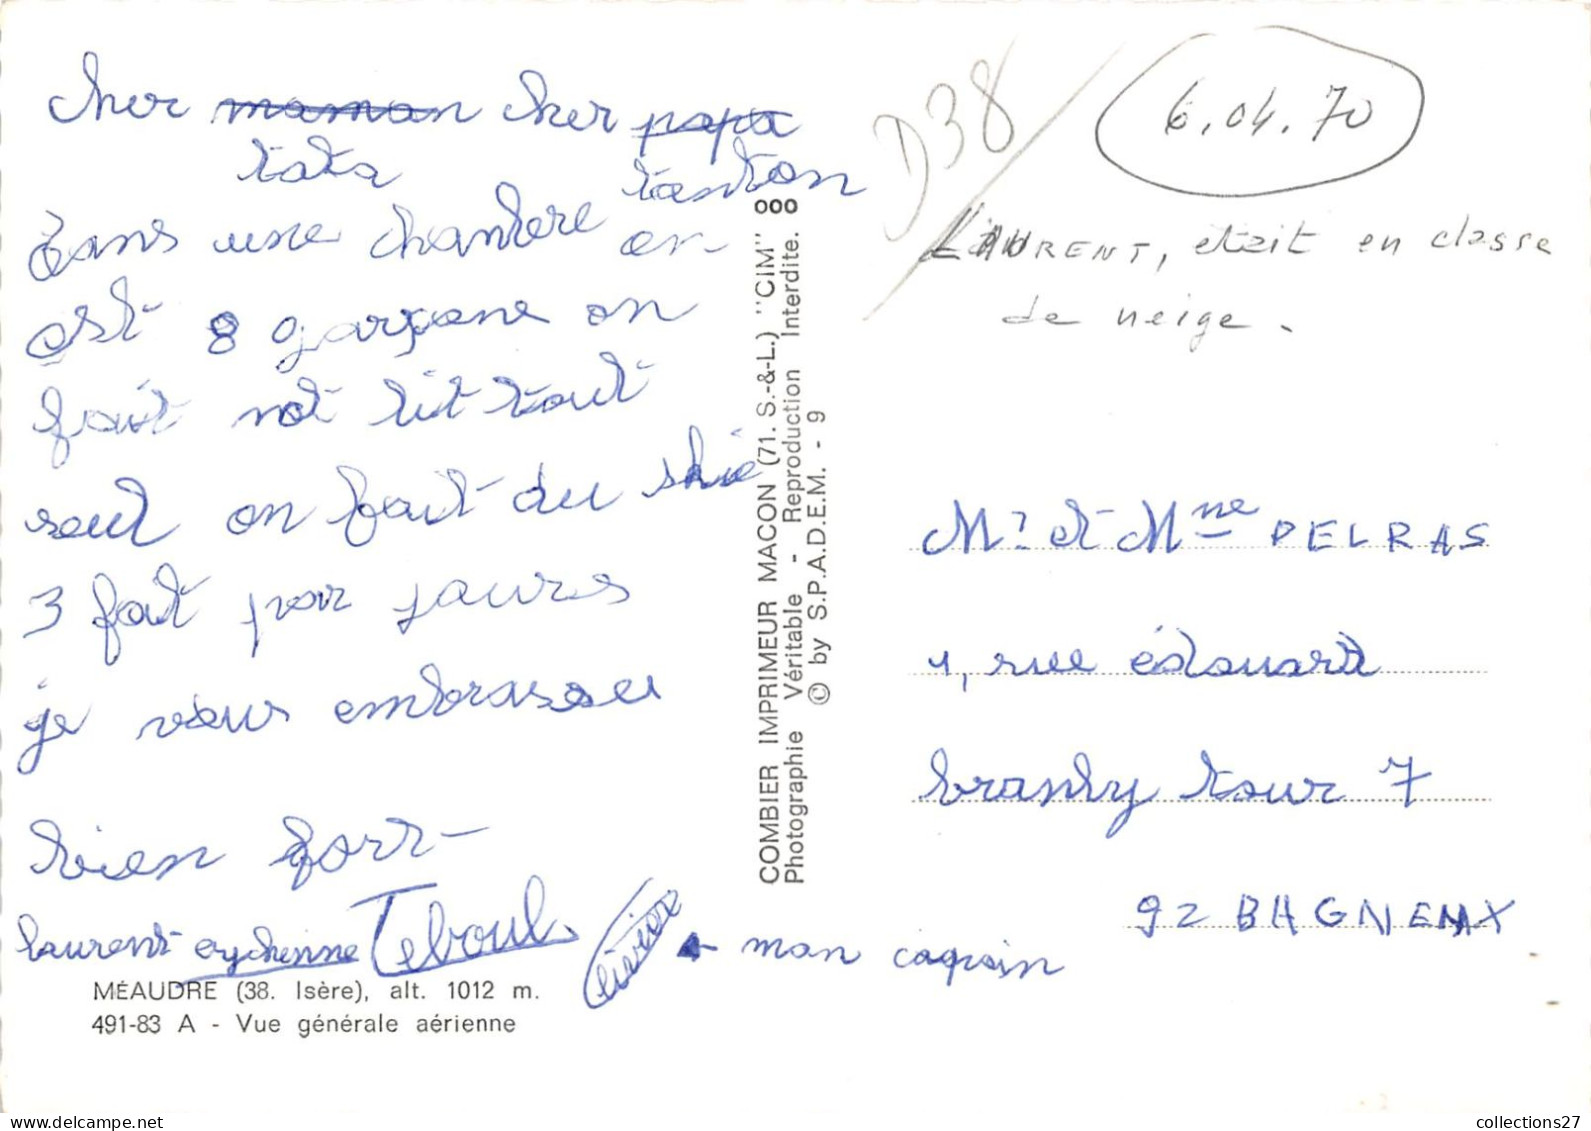 cher ~~maman~~ cher ~~papa~~
tata tonton
Dans une chambre on
est 8 garçons on
fait not lit tout
seul on fait du skie
3 foit par jours
je vous embrasse
bien fort
laurent Teboul
olivier ← mon copain
MÉAUDRE (38. Isère), alt. 1012 m.
491-83 A - Vue générale aérienne
COMBIER IMPRIMEUR MACON (71. S.-&-L.) "CIM" 000
Photographie Véritable - Reproduction Interdite.
© by S.P.A.D.E.M. - 9
D38
6.04.70
LAURENT, était en classe
de neige.
Mr et Mme DELRAS
1, rue édouard
branly tour 7
92 BAGNEUX
collections27